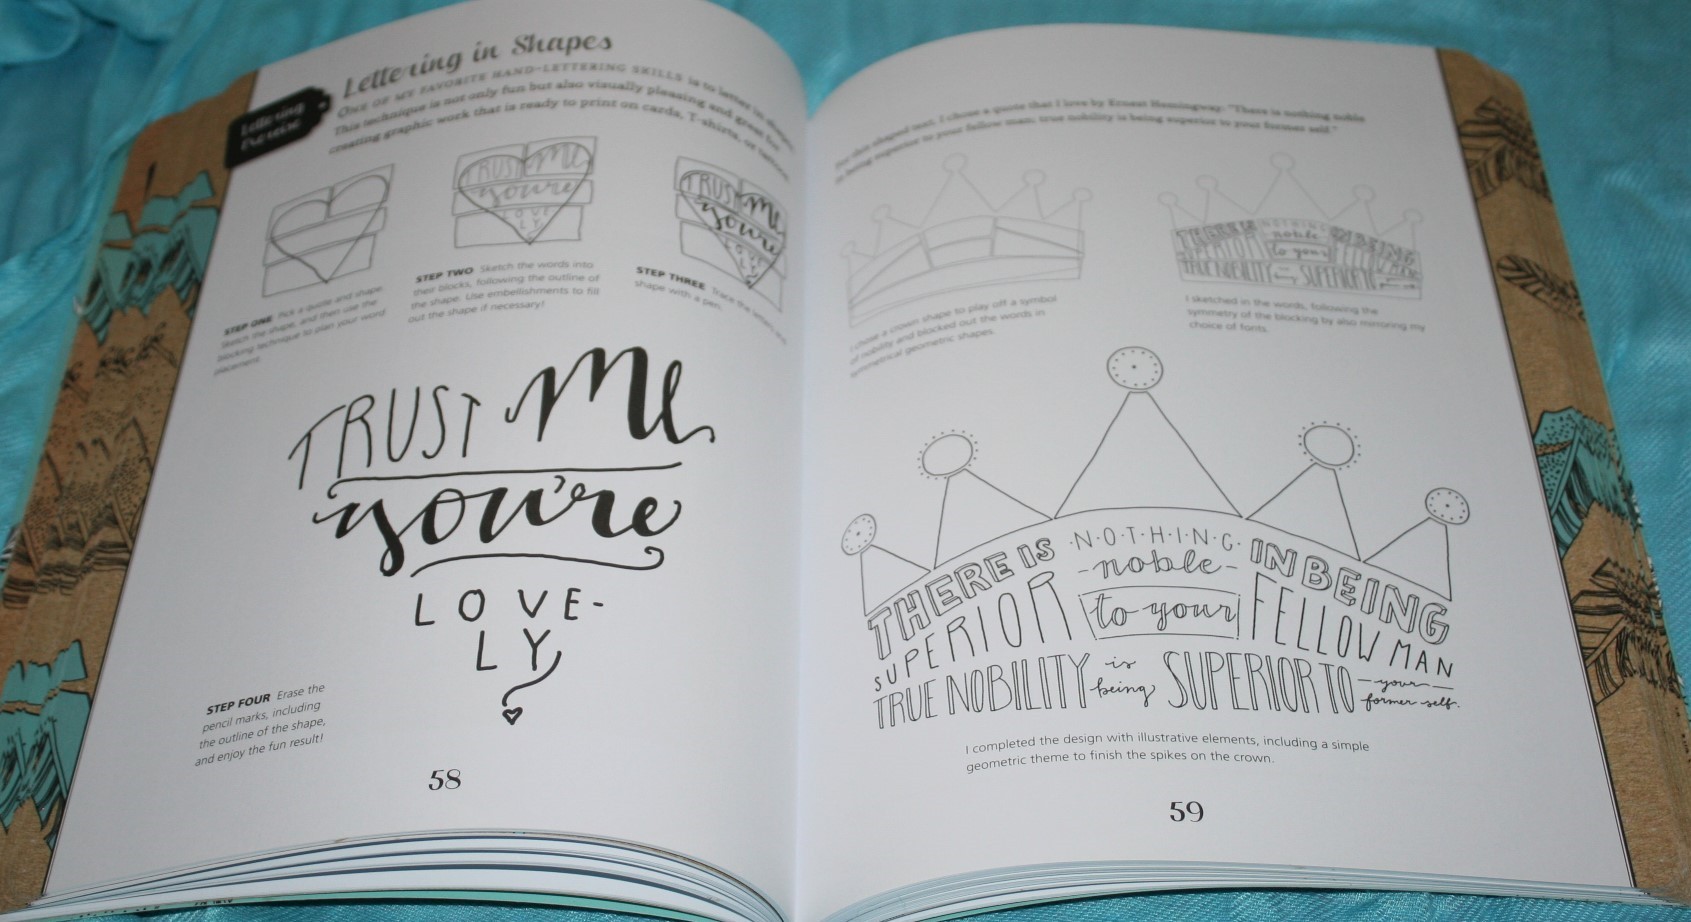 Lettering Exercise
Lettering in Shapes
ONE OF MY FAVORITE HAND-LETTERING SKILLS is to letter in shapes.
This technique is not only fun but also visually pleasing and great for
creating graphic work that is ready to print on cards, T-shirts, or
TRUST ME
you're
LOVE
LY
TRUST ME
you're
LOVE
LY
STEP ONE Pick a quote and shape.
Sketch the shape, and then use the
blocking technique to plan your word
placement.
STEP TWO Sketch the words into
their blocks, following the outline of
the shape. Use embellishments to fill
out the shape if necessary!
STEP THREE Trace the letters and
shape with a pen.
TRUST ME
you're
LOVE-
LY
STEP FOUR Erase the
pencil marks, including
the outline of the shape,
and enjoy the fun result!
58
For this shaped text, I chose a quote that I love by Ernest Hemingway: "There is nothing noble
in being superior to your fellow man; true nobility is being superior to your former self."
THERE IS NOTHING noble IN BEING
SUPERIOR to your FELLOW MAN
TRUE NOBILITY SUPERIOR TO
I chose a crown shape to play off a symbol
of nobility and blocked out the words in
symmetrical geometric shapes.
I sketched in the words, following the
symmetry of the blocking by also mirroring my
choice of fonts.
THERE IS N·O·T·H·I·N·G· IN BEING
-noble-
SUPERIOR to your FELLOW MAN
TRUE NOBILITY is being SUPERIOR TO your former self.
I completed the design with illustrative elements, including a simple
geometric theme to finish the spikes on the crown.
59